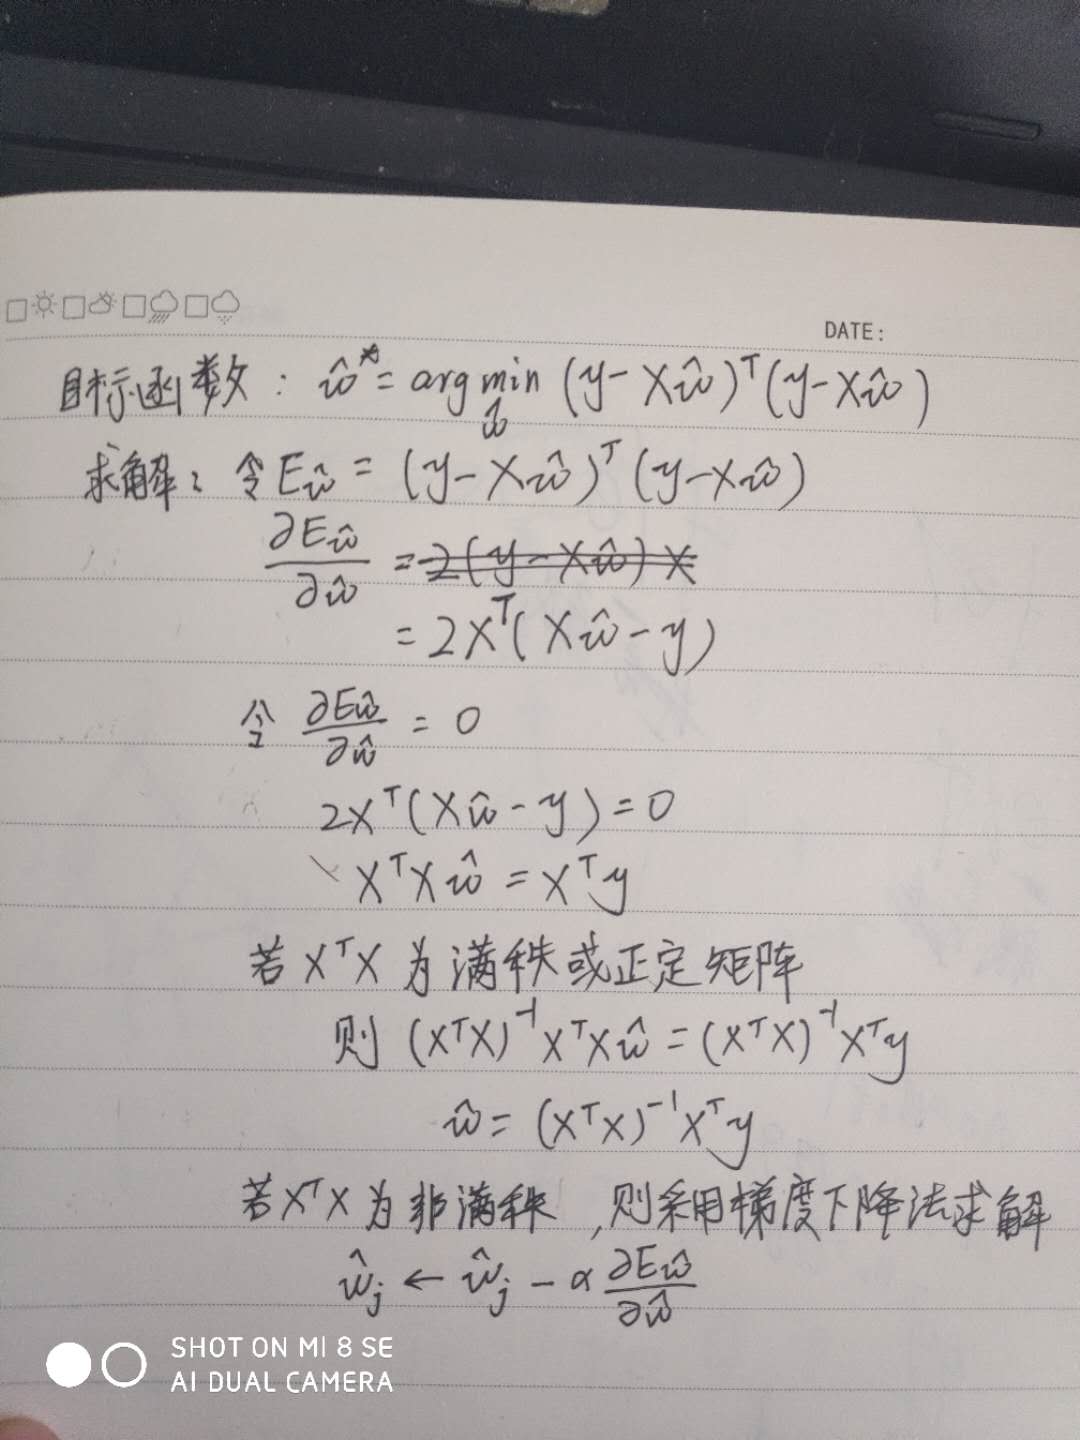 DATE:
目标函数：ŵ* = arg min (y - Xŵ)ᵀ(y - Xŵ)
ŵ
求解：令 Eŵ = (y - Xŵ)ᵀ(y - Xŵ)
∂Eŵ/∂ŵ = -2(y - Xŵ)X
= 2Xᵀ(Xŵ - y)
令 ∂Eŵ/∂ŵ = 0
2Xᵀ(Xŵ - y) = 0
XᵀXŵ = Xᵀy
若 XᵀX 为满秩或正定矩阵
则 (XᵀX)⁻¹XᵀXŵ = (XᵀX)⁻¹Xᵀy
ŵ = (XᵀX)⁻¹Xᵀy
若 XᵀX 为非满秩，则采用梯度下降法求解
ŵⱼ ← ŵⱼ - α ∂Eŵ/∂ŵ
SHOT ON MI 8 SE
AI DUAL CAMERA